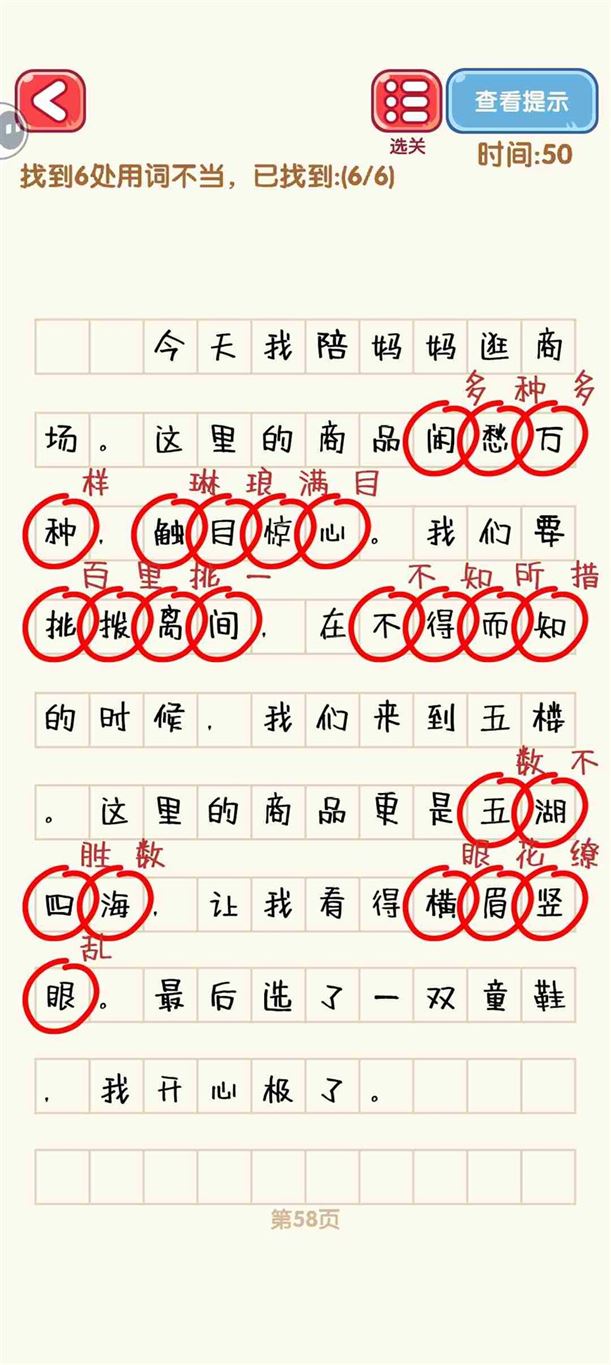 查看提示
选关
时间:50
找到6处用词不当，已找到:(6/6)
今天我陪妈妈逛商
多种多
场。这里的商品闲愁万
样 琳琅满目
种，触目惊心。我们要
百里挑一 不知所措
挑拨离间，在不得而知
的时候，我们来到五楼
数不
。这里的商品更是五湖
胜数 眼花缭
四海，让我看得横眉竖
乱
眼。最后选了一双童鞋
，我开心极了。
第58页